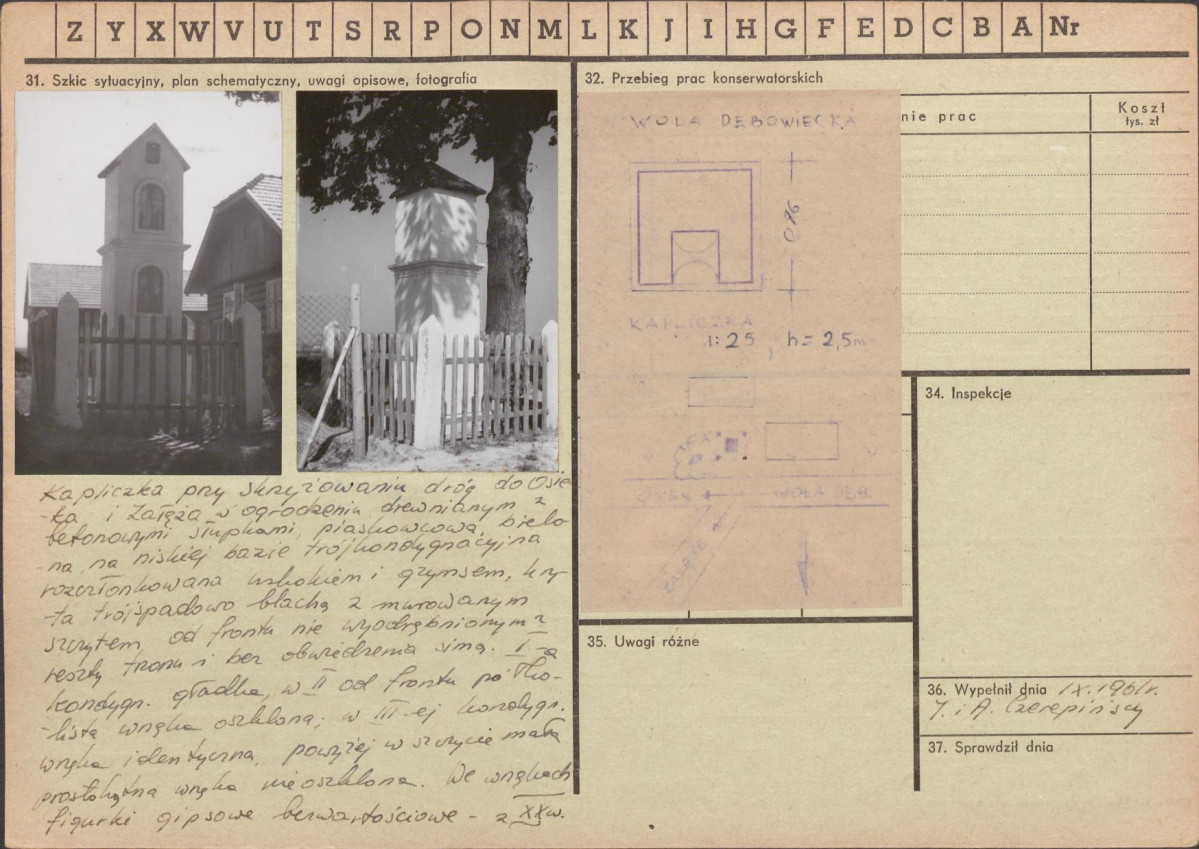 Z Y X W V U T S R P O N M L K J I H G F E D C B A Nr
31. Szkic sytuacyjny, plan schematyczny, uwagi opisowe, fotografia
Kapliczka przy skrzyżowaniu dróg do Osie
-ka i Załęża w ogrodzeniu drewnianym z
betonowymi słupkami, piaskowcowa, bielo
-na, na niskiej bazie trójkondygnacyjna
rozczłonkowana uskokiem i gzymsem, kry-
-ta trójspadowo blachą z murowanym
szczytem od frontu nie wyodrębnionym z
reszty tronu i bez obwiedzenia simą. I-a
kondygn. gładka, w II od frontu półko-
-lista wnęka oszklona; w III-ej kondygn.
wnęka identyczna, powyżej w szczycie mała
prostokątna wnęka nieoszklona. We wnękach
figurki gipsowe bezwartościowe - z XX w.
32. Przebieg prac konserwatorskich
nie prac
Koszt
tys. zł
WOLA DĘBOWIECKA
KAPLICZKA
1:25, h = 2,5m
OSIEK WOLA DĘB.
ZAŁĘŻE
34. Inspekcje
35. Uwagi różne
36. Wypełnił dnia IX.1961r.
J. i A. Czerepińscy
37. Sprawdził dnia